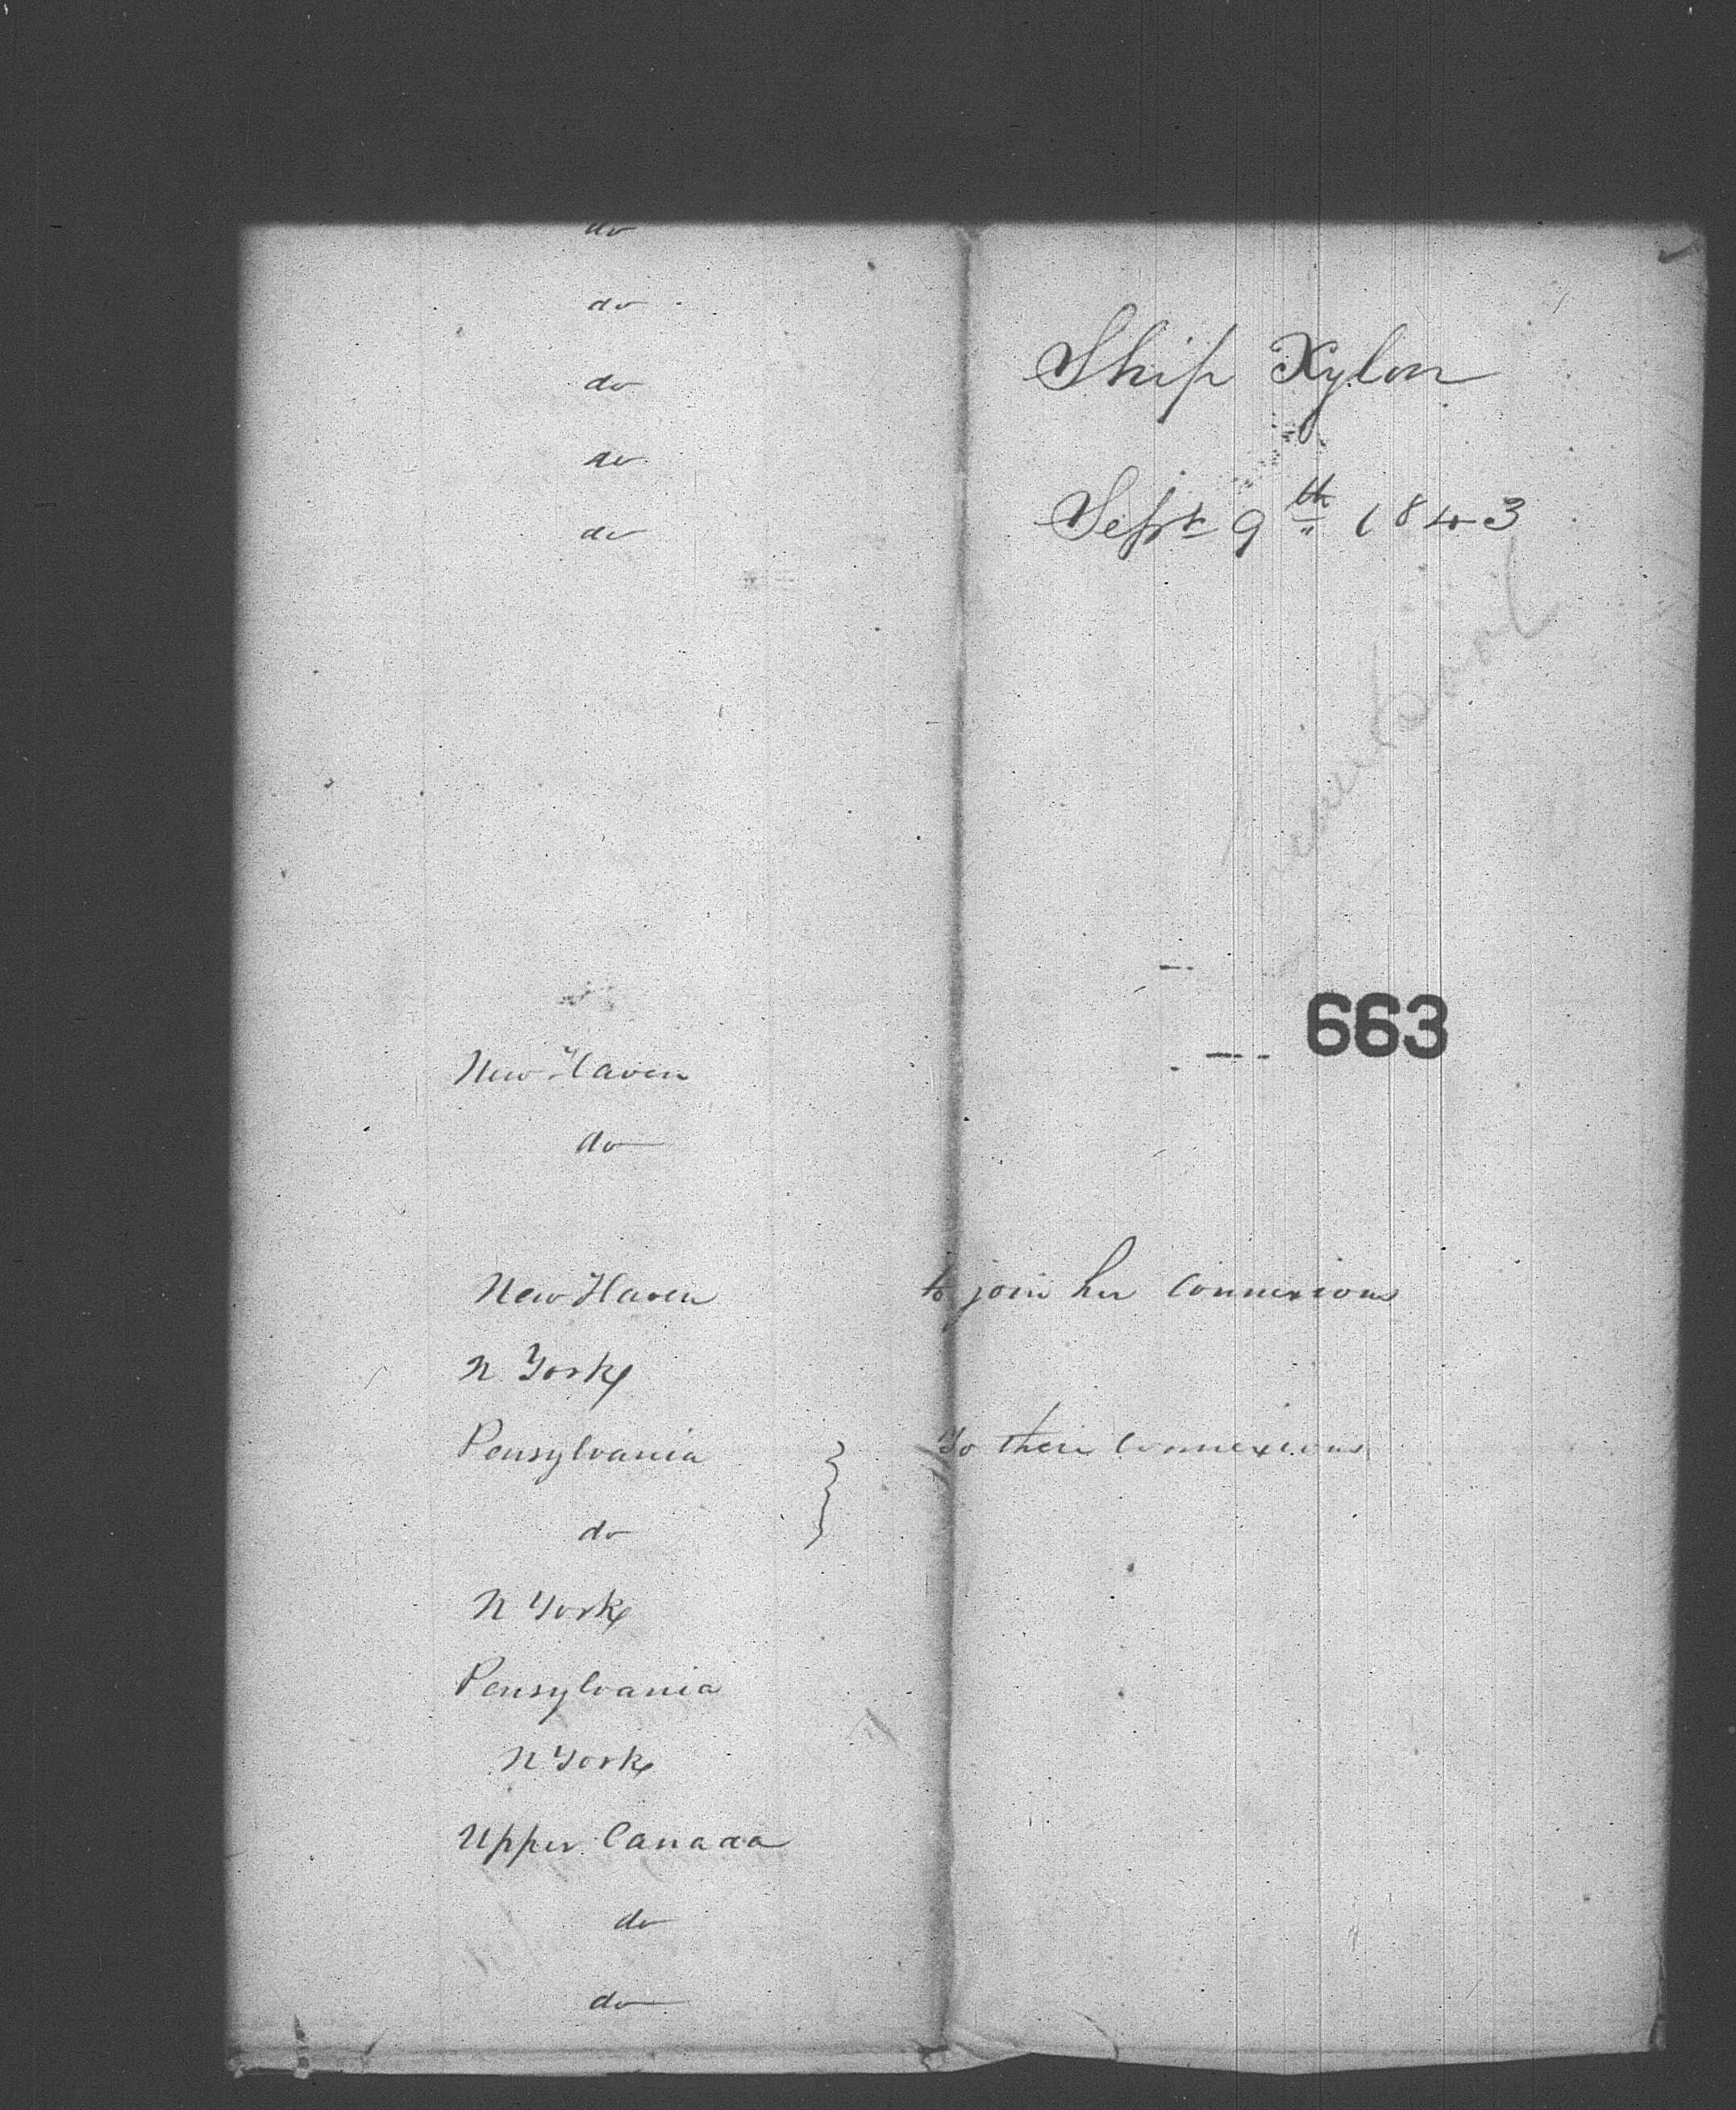 do
do
do
do
do
Ship Xylon
Sept 9th 1843
663
New Haven
do
New Haven to join her Connexions
N York
Pensylvania To their Connexions
do
N York
Pensylvania
N York
Upper Canada
do
do